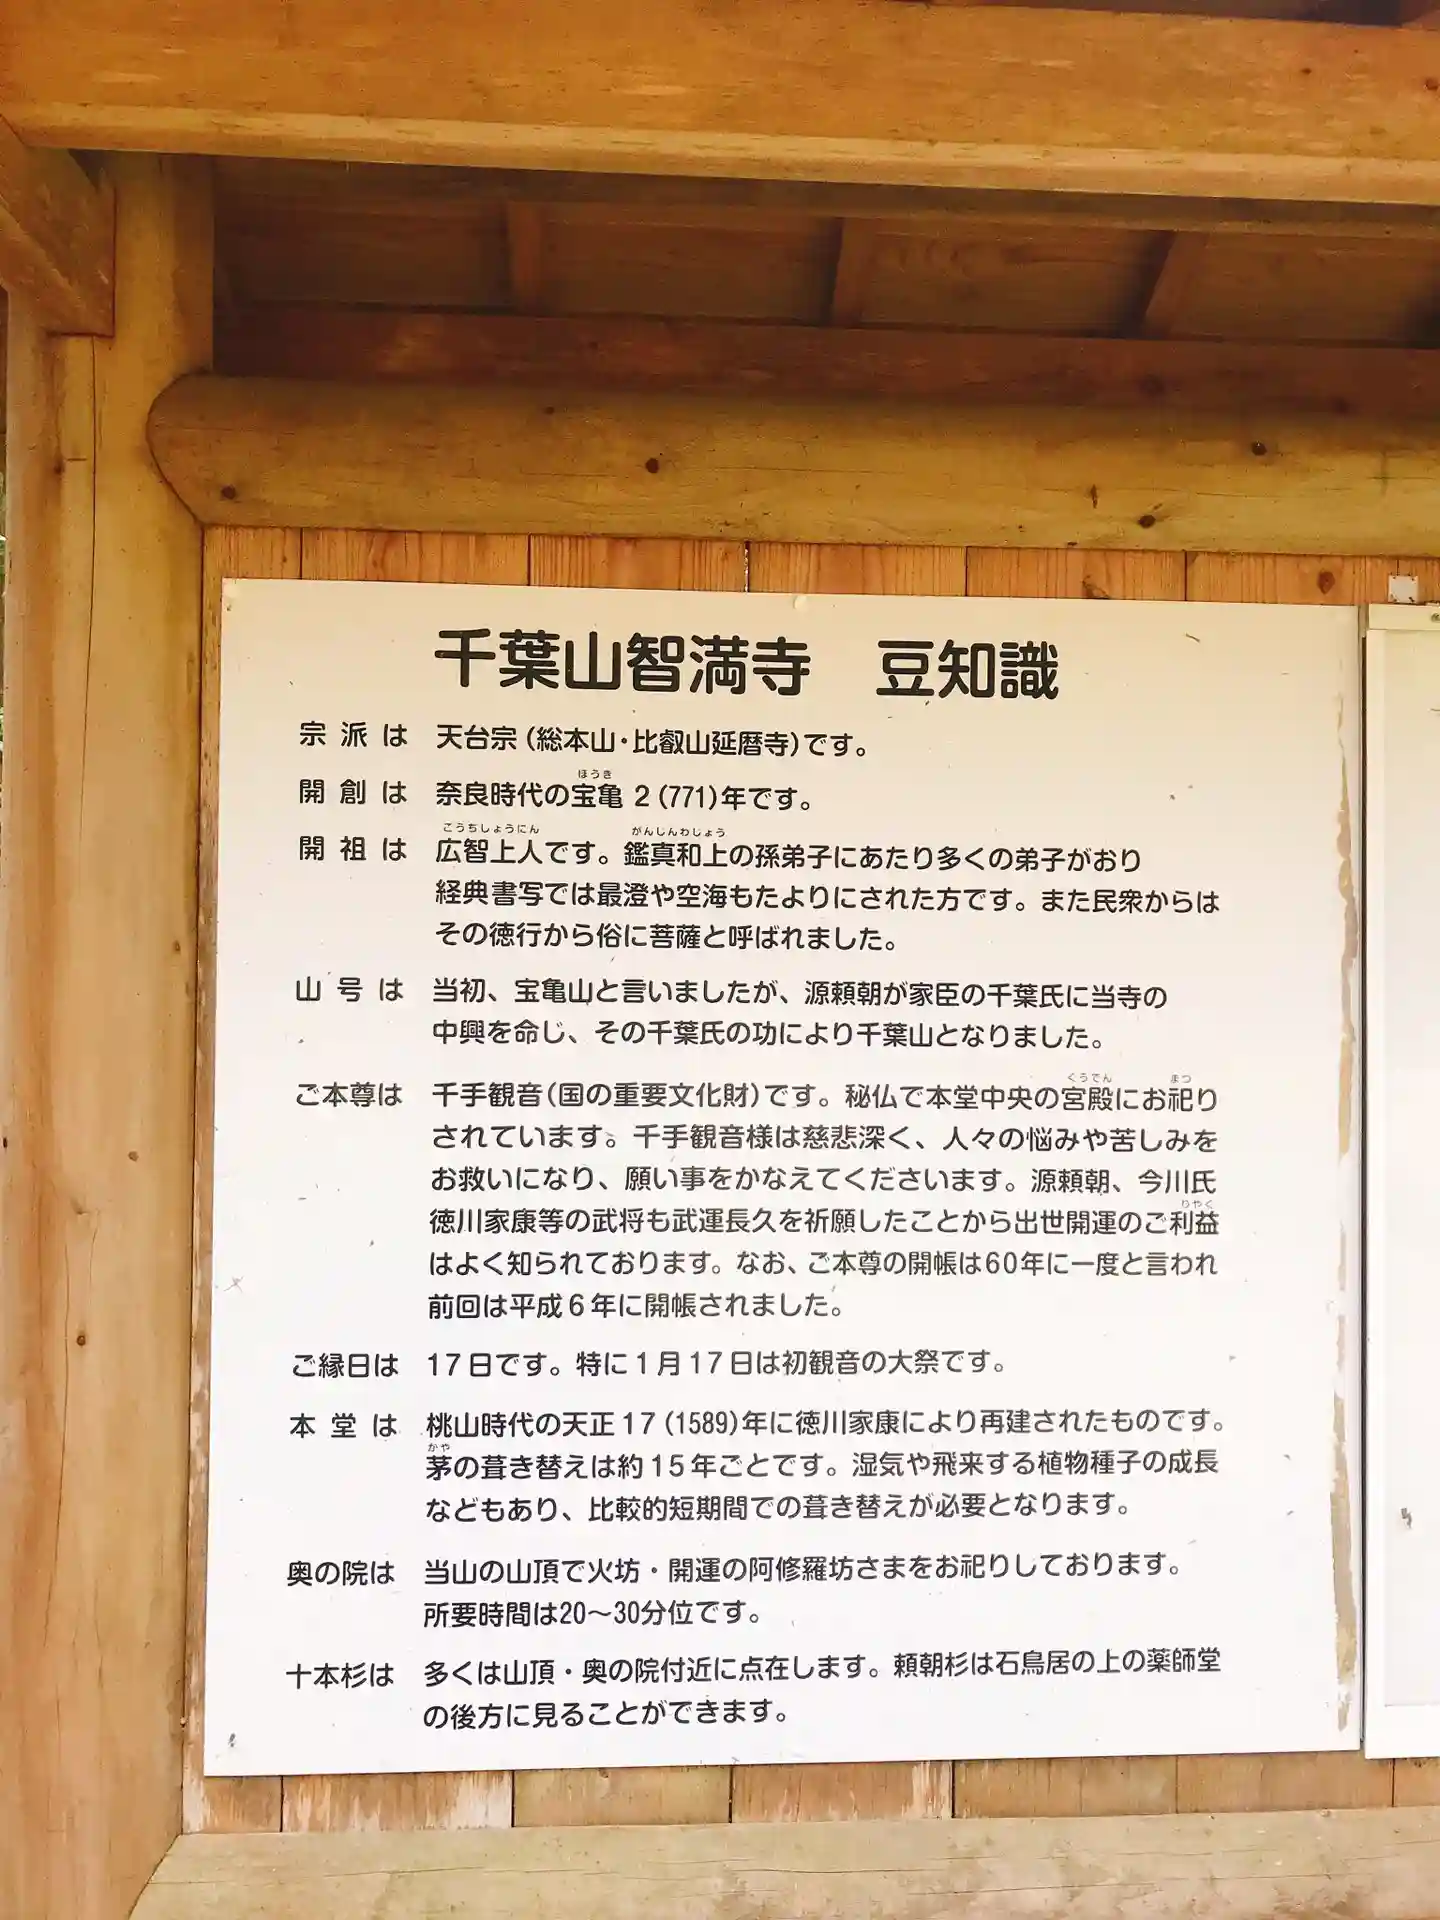 千葉山智満寺　豆知識
宗派は　天台宗（総本山・比叡山延暦寺）です。
ほうき
開創は　奈良時代の宝亀２（771）年です。
こうちしょうにん　がんじんわじょう
開祖は　広智上人です。鑑真和上の孫弟子にあたり多くの弟子がおり
経典書写では最澄や空海もたよりにされた方です。また民衆からは
その徳行から俗に菩薩と呼ばれました。
山号は　当初、宝亀山と言いましたが、源頼朝が家臣の千葉氏に当寺の
中興を命じ、その千葉氏の功により千葉山となりました。
くうでん　まつ
ご本尊は　千手観音（国の重要文化財）です。秘仏で本堂中央の宮殿にお祀り
されています。千手観音様は慈悲深く、人々の悩みや苦しみを
お救いになり、願い事をかなえてくださいます。源頼朝、今川氏
りやく
徳川家康等の武将も武運長久を祈願したことから出世開運のご利益
はよく知られております。なお、ご本尊の開帳は60年に一度と言われ
前回は平成６年に開帳されました。
ご縁日は　17日です。特に１月17日は初観音の大祭です。
本堂は　桃山時代の天正17（1589）年に徳川家康により再建されたものです。
かや
茅の葺き替えは約15年ごとです。湿気や飛来する植物種子の成長
などもあり、比較的短期間での葺き替えが必要となります。
奥の院は　当山の山頂で火坊・開運の阿修羅坊さまをお祀りしております。
所要時間は20〜30分位です。
十本杉は　多くは山頂・奥の院付近に点在します。頼朝杉は石鳥居の上の薬師堂
の後方に見ることができます。